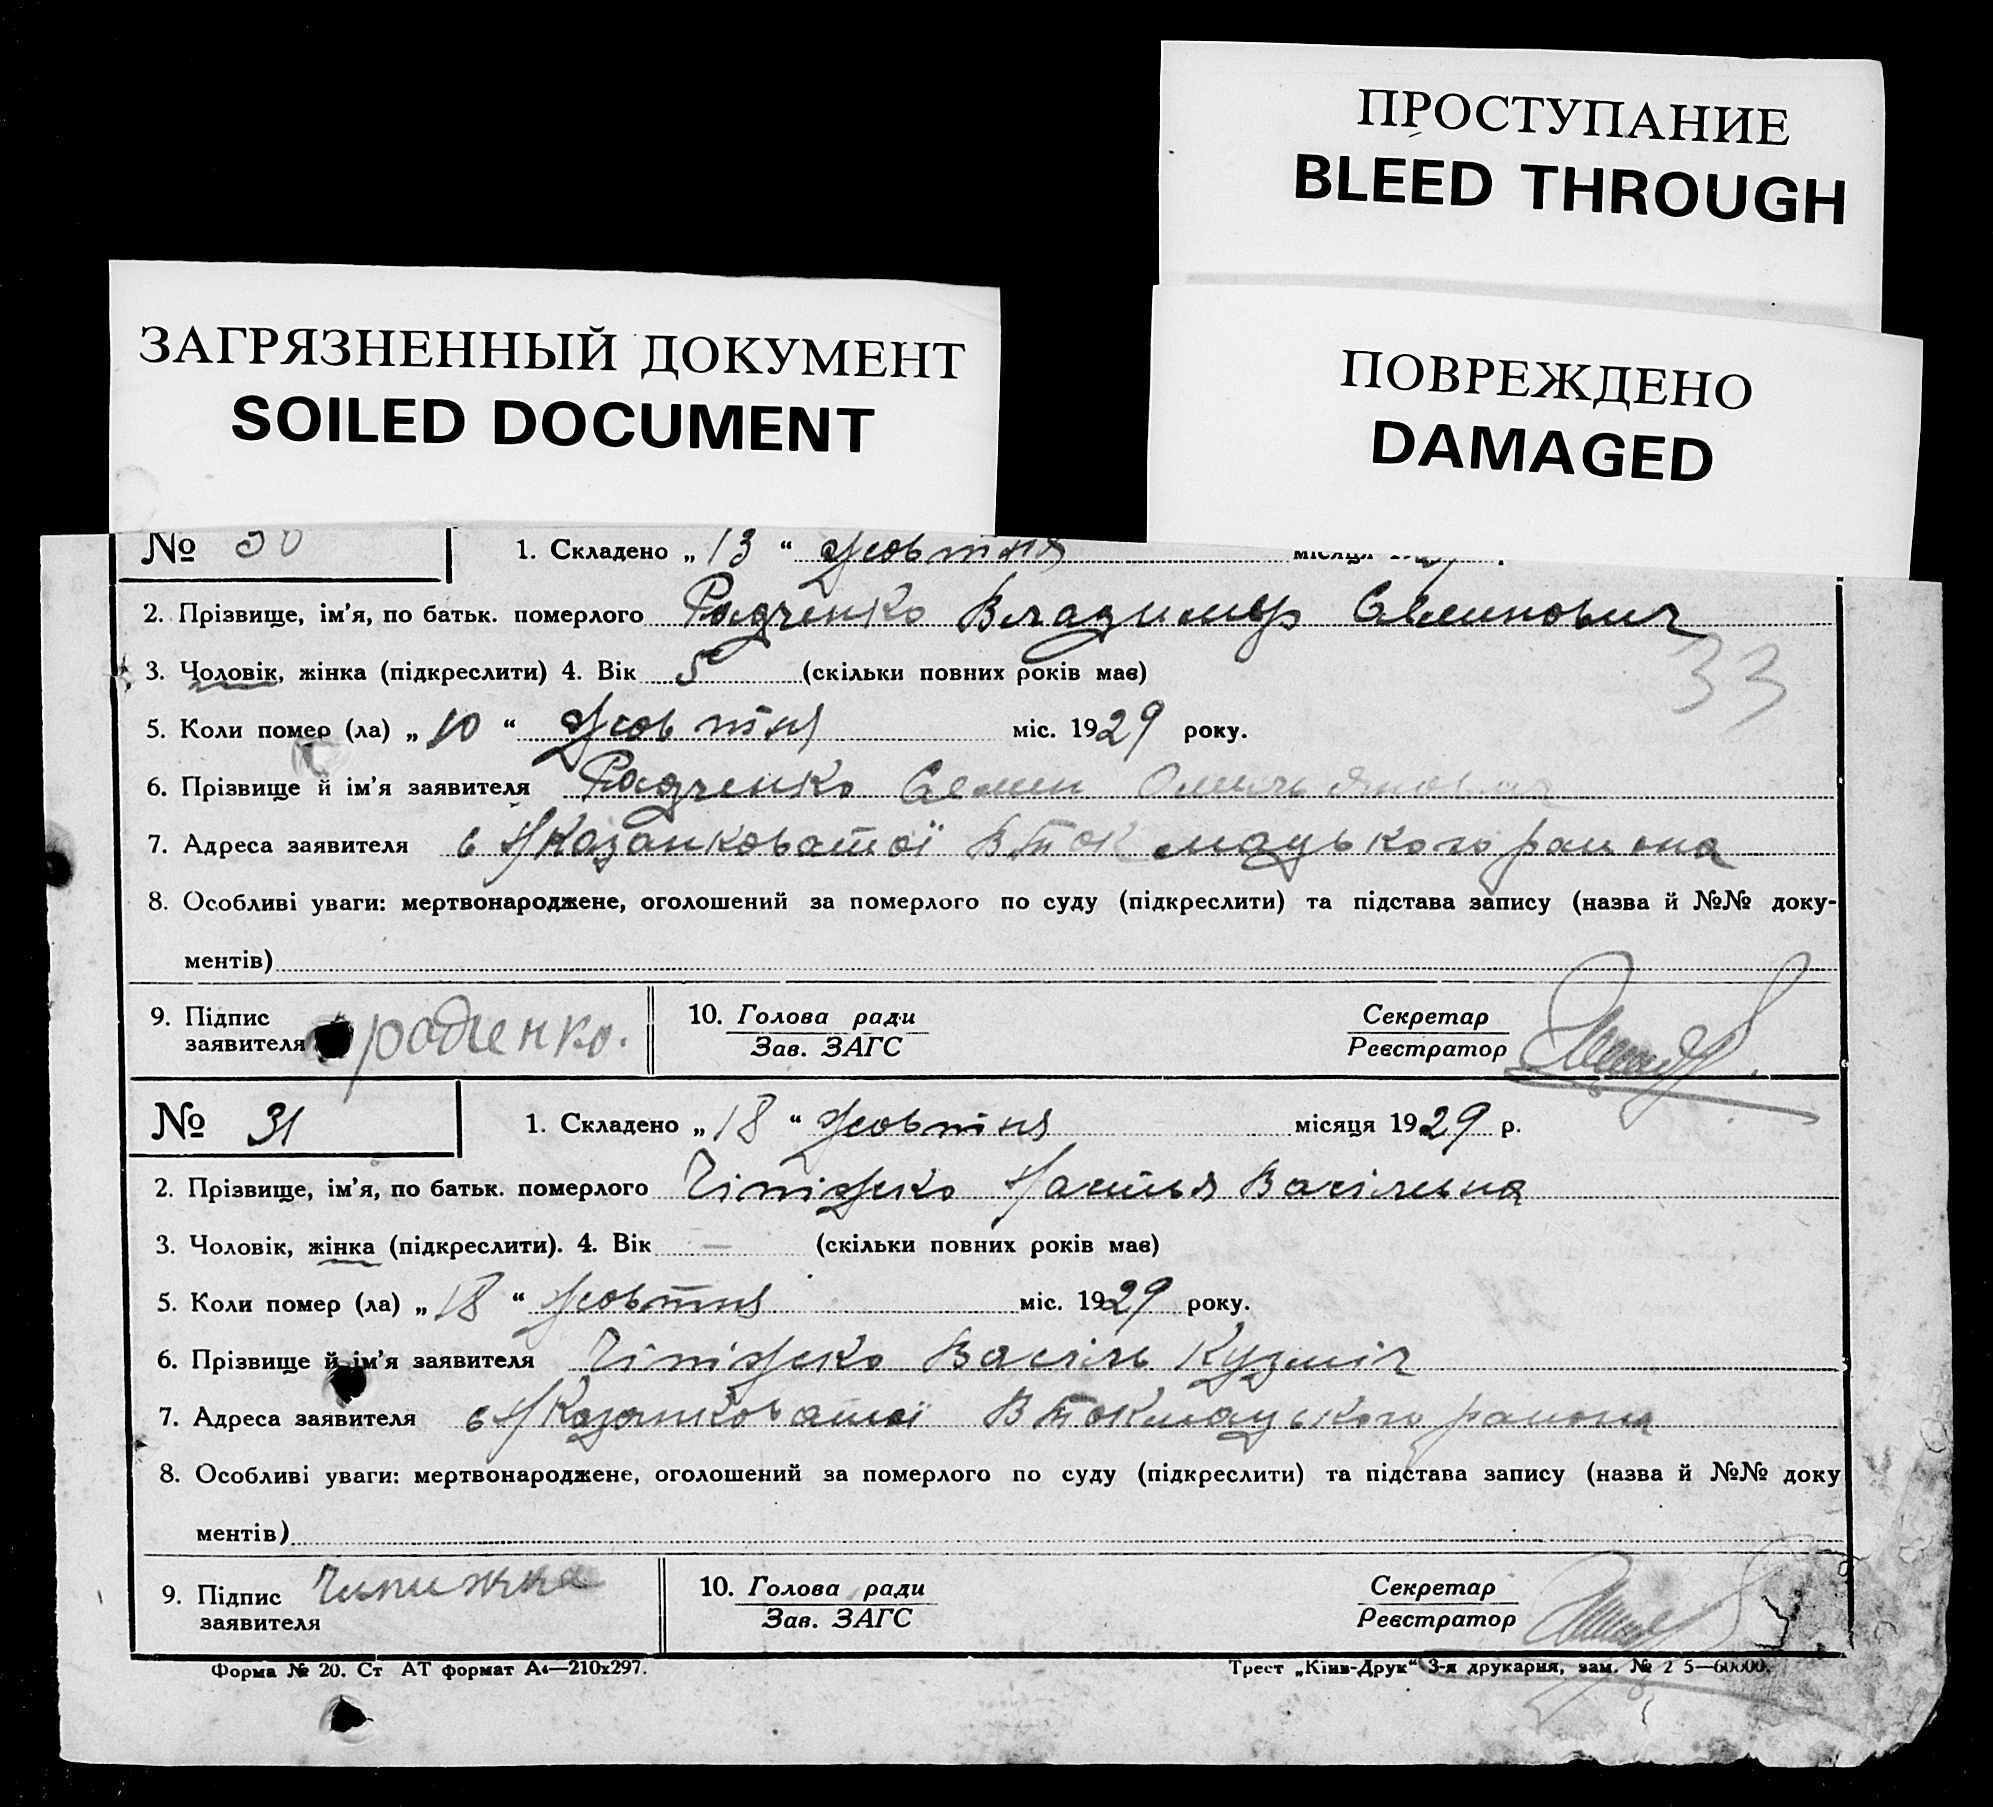 ПРОСТУПАНИЕ
BLEED THROUGH
ЗАГРЯЗНЕННЫЙ ДОКУМЕНТ
SOILED DOCUMENT
ПОВРЕЖДЕНО
DAMAGED
№ 30 1. Складено „ 13 “ Жовтня місяця
2. Прізвище, ім’я, по батьк. померлого Радченко Владимер Семинович
3. Чоловік, жінка (підкреслити) 4. Вік 5 (скільки повних років має)
33
5. Коли помер (ла) „ 10 “ Жовтня міс. 1929 року.
6. Прізвище й ім’я заявителя Радченко Семен
7. Адреса заявителя с НКазанковатої ВТокмацького района
8. Особливі уваги: мертвонароджене, оголошений за померлого по суду (підкреслити) та підстава запису (назва й №№ доку-
ментів)
9. Підпис заявителя радченко. 10. Голова ради Секретар
Зав. ЗАГС Реєстратор
№ 31 1. Складено „ 18 “ Жовтня місяця 1929 р.
2. Прізвище, ім’я, по батьк. померлого Чіпіжко Настья Васільна
3. Чоловік, жінка (підкреслити). 4. Вік — (скільки повних років має)
5. Коли помер (ла) „ 18 “ Жовтня міс. 1929 року.
6. Прізвище й ім’я заявителя Чіпіжко Васіль Кузміч
7. Адреса заявителя с НКазанковатої ВТокмацького района
8. Особливі уваги: мертвонароджене, оголошений за померлого по суду (підкреслити) та підстава запису (назва й №№ доку
ментів)
9. Підпис заявителя Чипижка 10. Голова ради Секретар
Зав. ЗАГС Реєстратор
Форма № 20. Ст АТ формат А4—210х297. Трест „Київ-Друк“ 3-я друкарня, зам. № 2 5—60000.